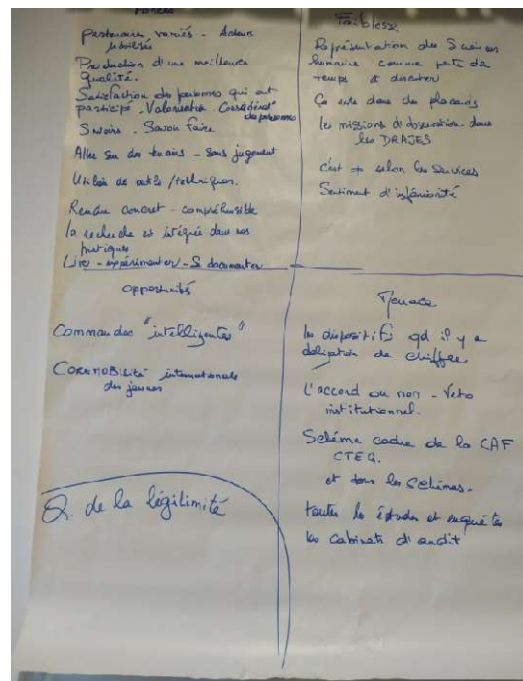 Forces
partenaires variés - Acteurs
mobilisés
Production d'une meilleure
qualité.
Satisfaction des personnes qui ont
participé - Valorisation - Considérat°
des personnes
Savoirs - Savoir faire
Aller sur des terrains - sans jugement
outils / techniques.
Rendre concret - compréhensible
la recherche est intégrée dans nos
pratiques
Lire - expérimenter - Se documenter
opportunités
Commandes "intelligentes"
internationale
des jeunes
Q. de la légitimité
Faiblesse
Représentation des Sciences
humaine comme perte de
temps à discuter
Ça dans des placards
les missions d'observation dans
les DRAJES
c'est + selon les Services
Sentiment d'infériorité
Menace
les dispositifs qd il y a
obligation de chiffres
L'accord ou non - Veto
institutionnel.
Schéma cadre de la CAF
CTEG.
et tous les Schémas.
toutes les études et enquêtes
les cabinets d'audit